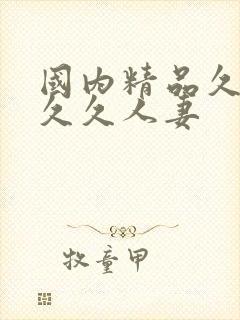 國内精品久
久久人妻
牧童甲